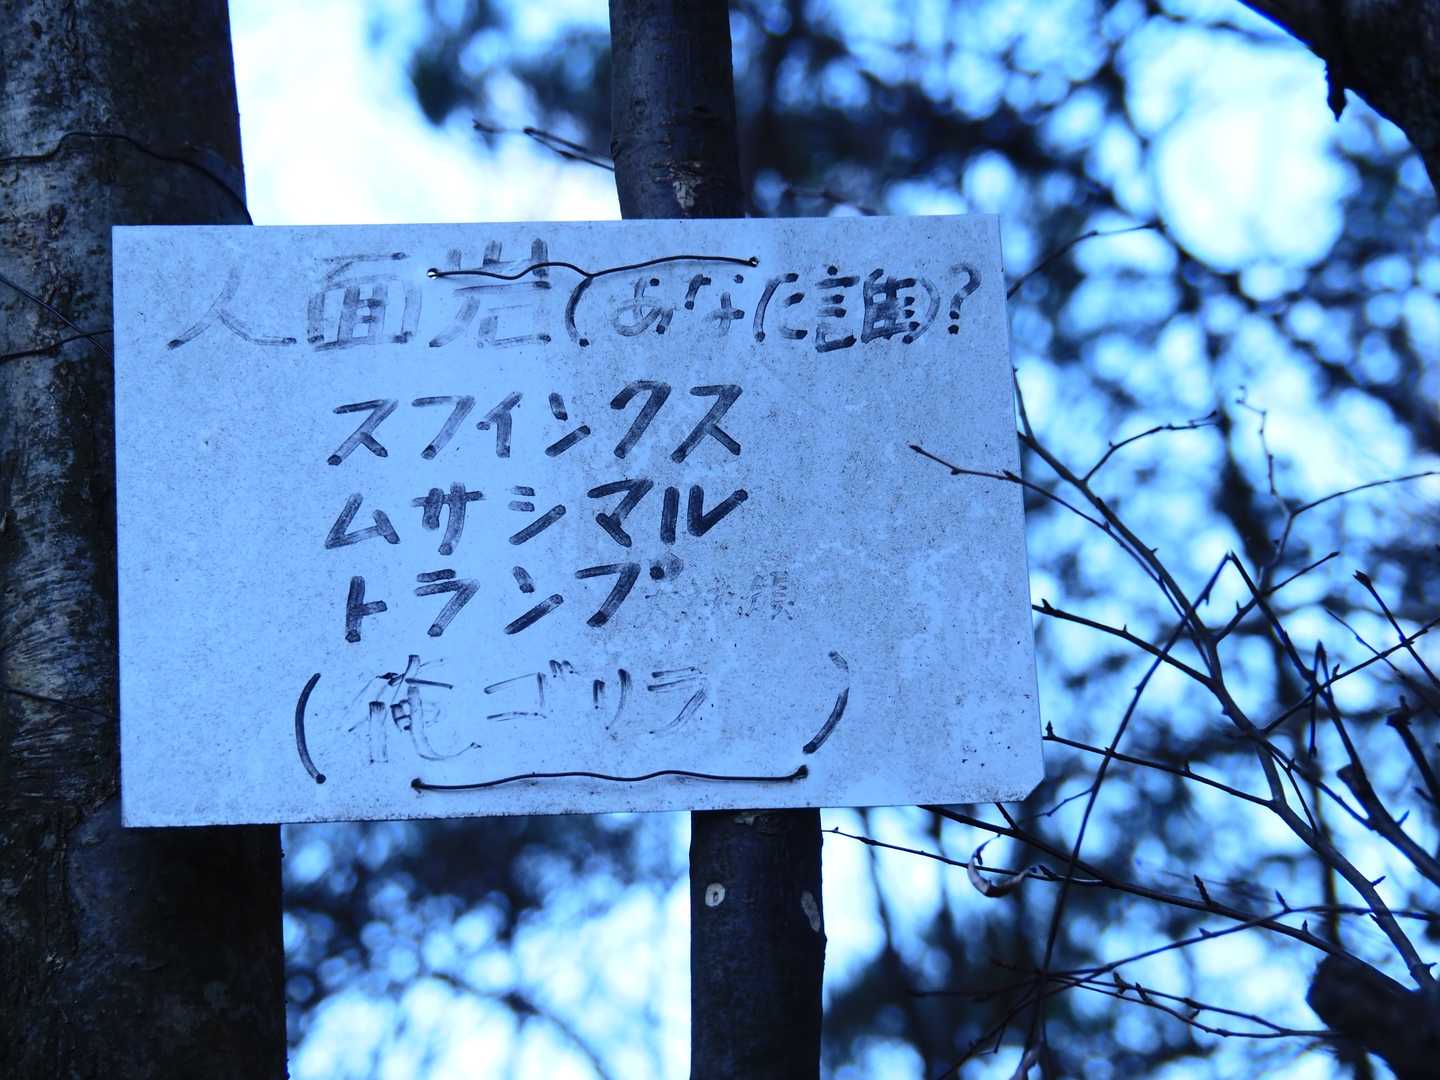 人面岩(あなた誰)?
スフインクス
ムサシマル
トランプ
(俺ゴリラ)